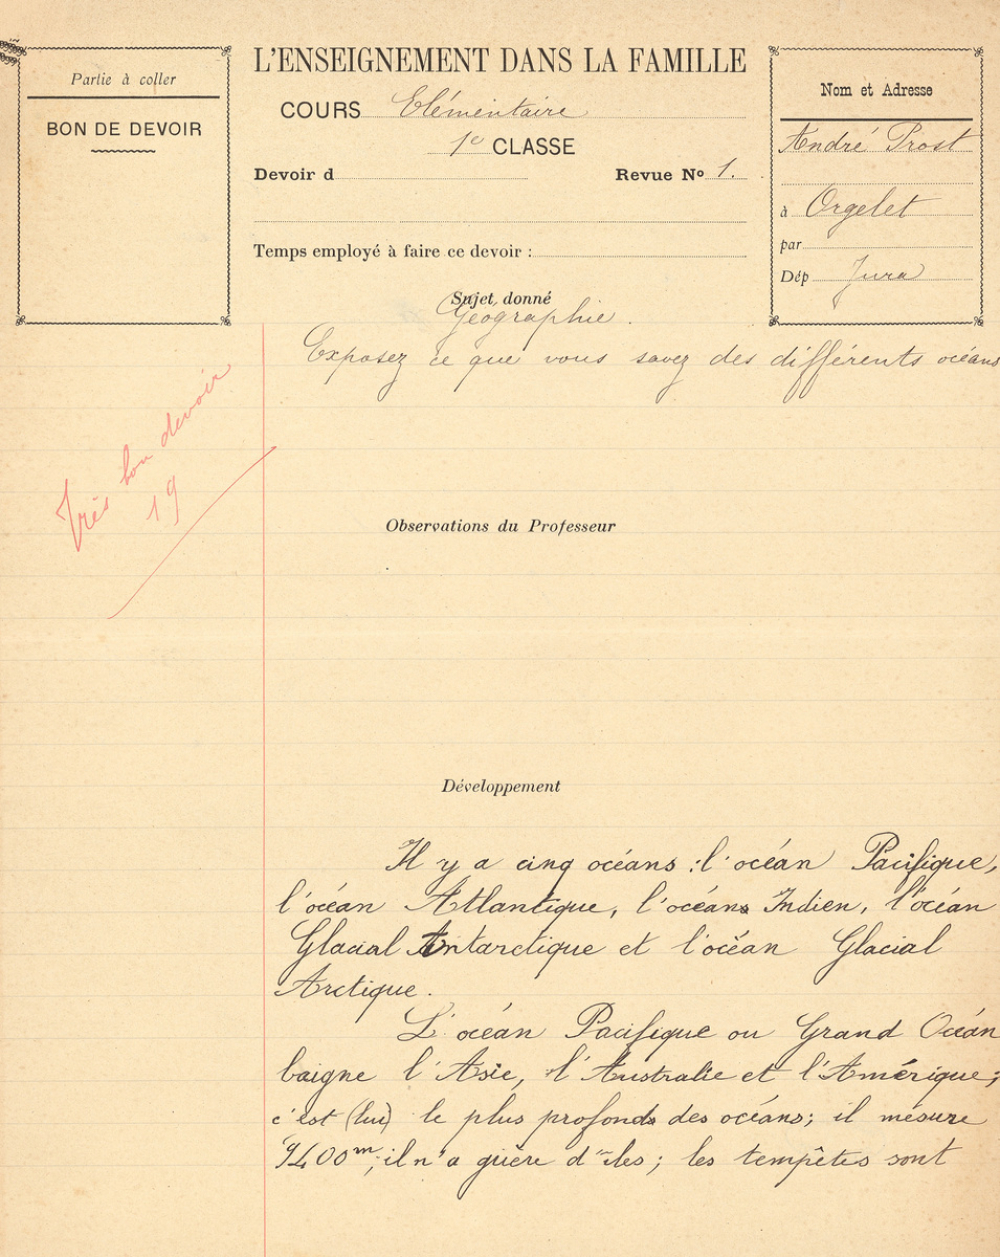 Partie à coller
BON DE DEVOIR
L'ENSEIGNEMENT DANS LA FAMILLE
COURS Elémentaire
1e CLASSE
Devoir d
Revue No 1.
Temps employé à faire ce devoir :
Nom et Adresse
André Prost
à Orgelet
par
Dép Jura
Sujet donné
Géographie.
Exposez ce que vous savez des différents océans
Très bon devoir
19
Observations du Professeur
Développement
Il y a cinq océans : l'océan Pacifique,
l'océan Atlantique, l'océans Indien, l'océan
Glacial Antarctique et l'océan Glacial
Arctique.
L'océan Pacifique ou Grand Océan
baigne l'Asie, l'Australie et l'Amérique;
c'est (lui) le plus profonds des océans; il mesure
9400m; il n'a guère d'îles; les tempêtes sont